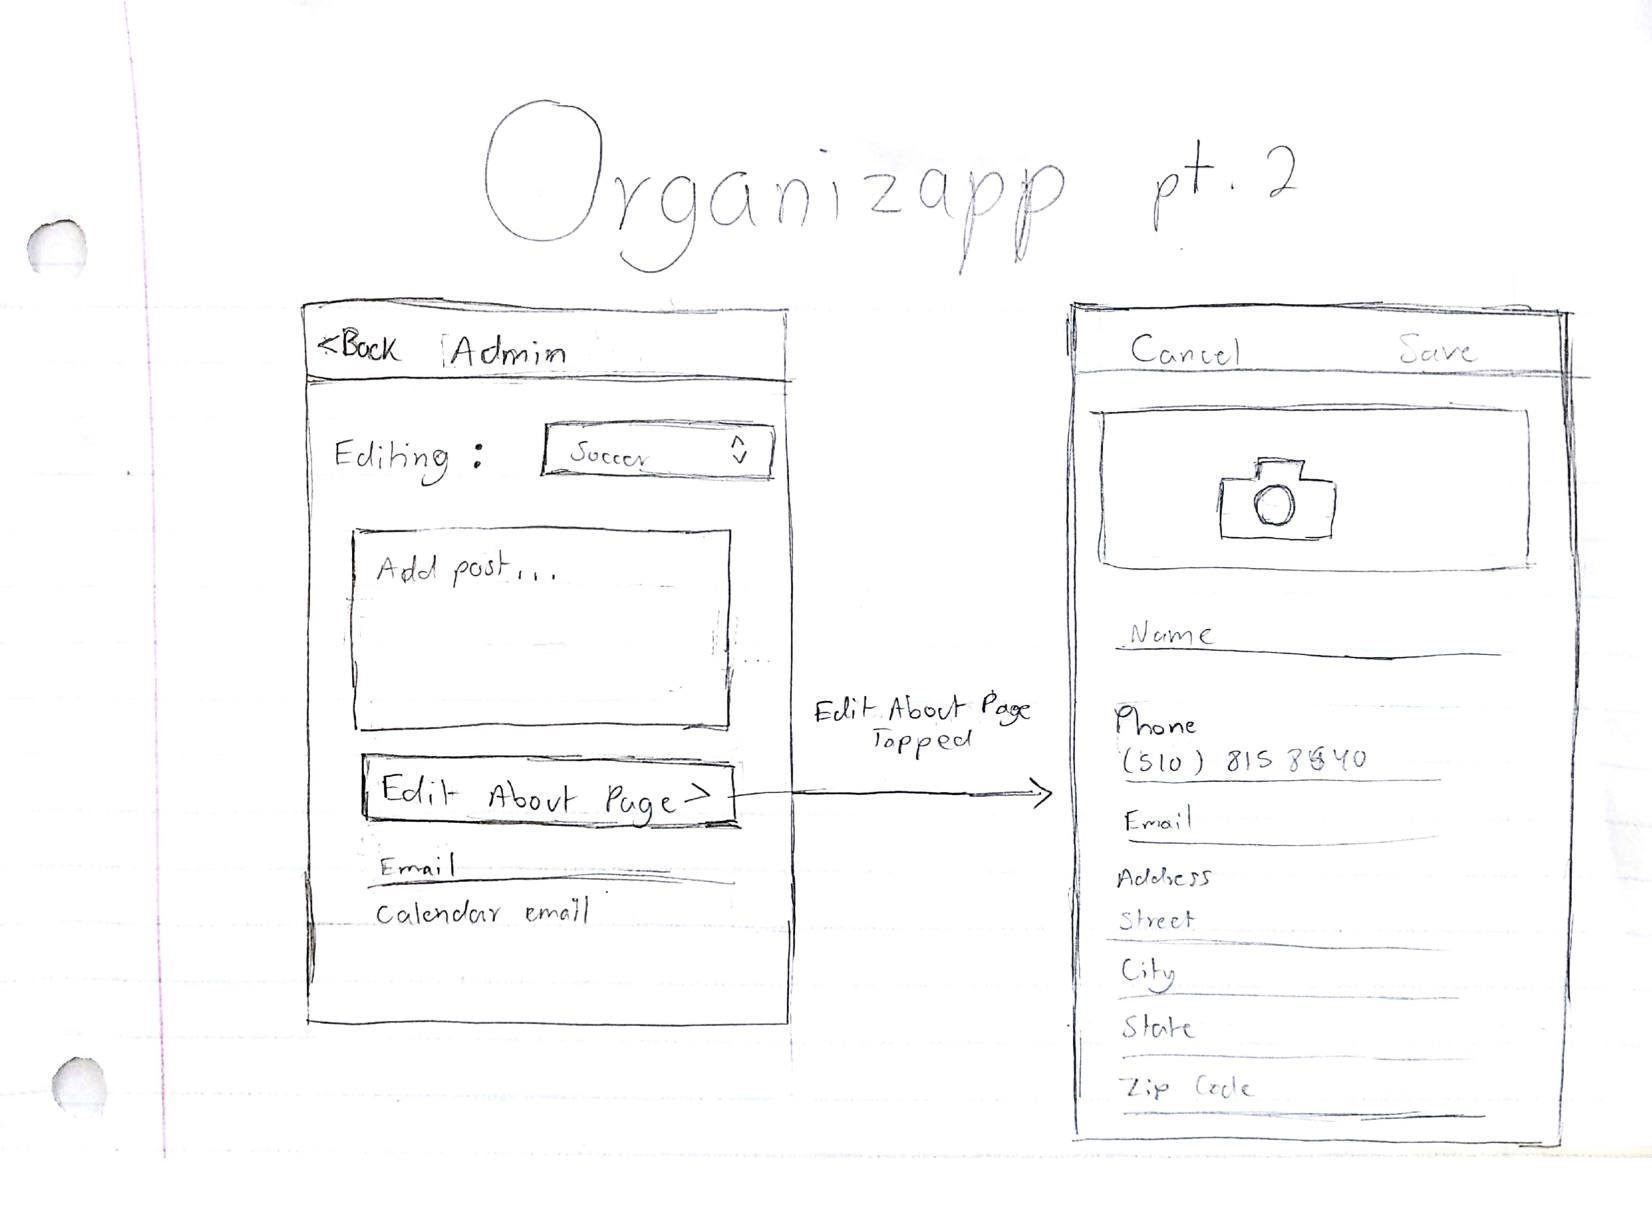 Organizapp pt. 2
<Back Admin
Editing : Soccer
Add post...
Edit About Page >
Email
Calendar email
Edit About Page
Tapped
Cancel Save
Name
Phone
(510) 815 8840
Email
Address
Street
City
State
Zip Code